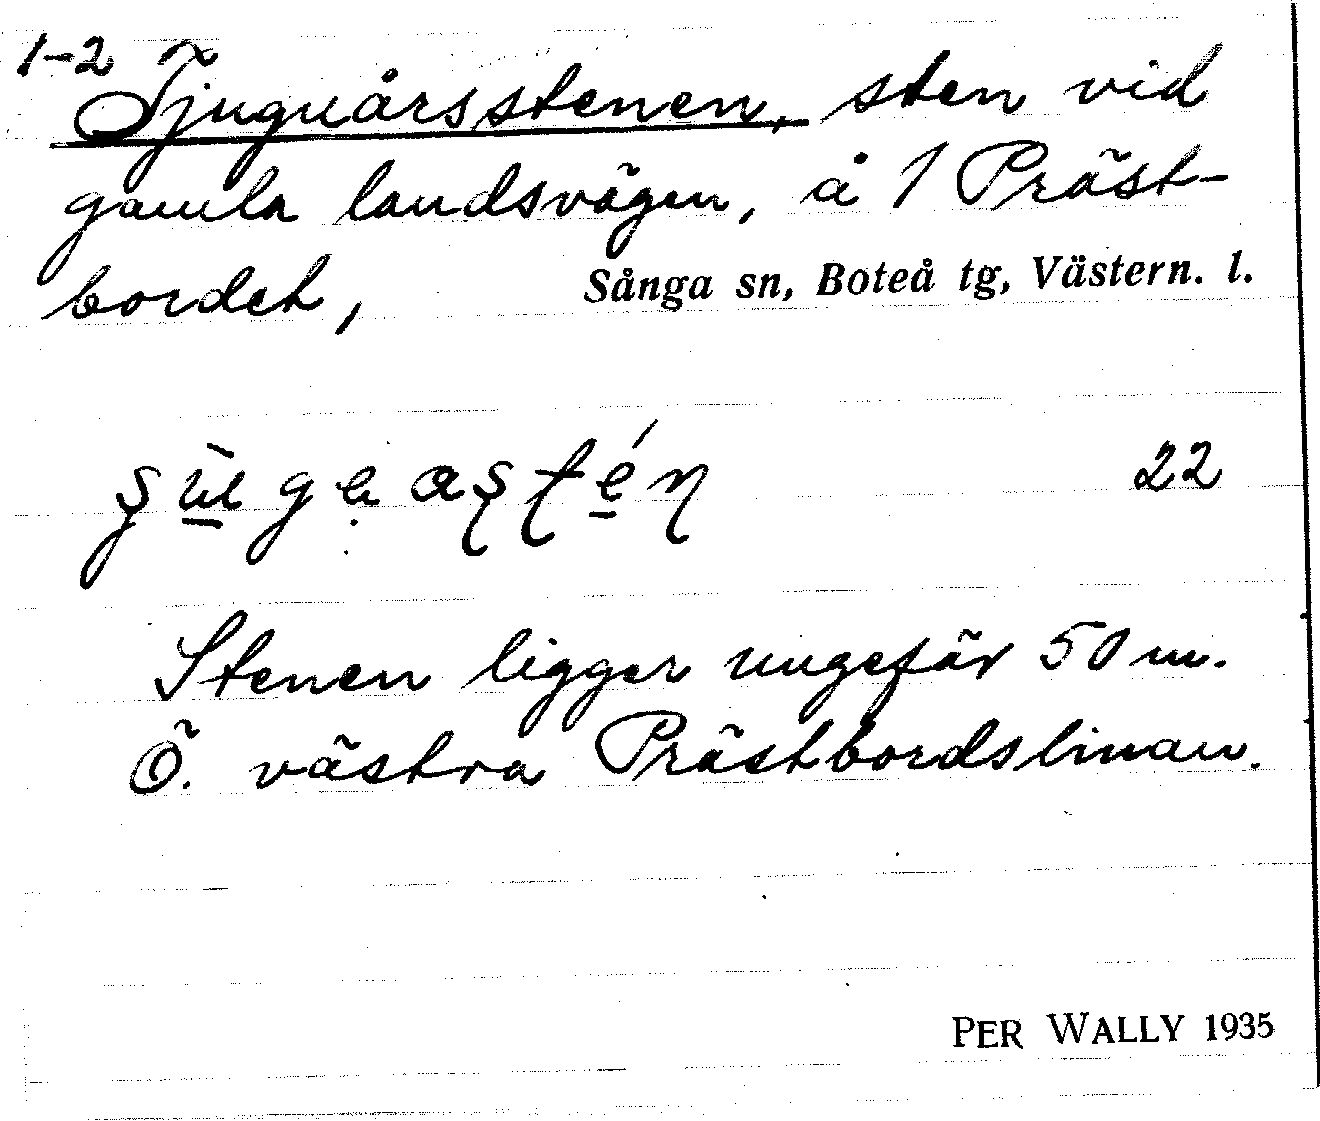 1-2
Tjuguårsstenen, sten vid
gamla landsvägen, å 1 Präst-
bordet, Sånga sn, Boteå tg, Västern. l.
22
Stenen ligger ungefär 50 m.
Ö. västra Prästbordslinan.
PER WALLY 1935